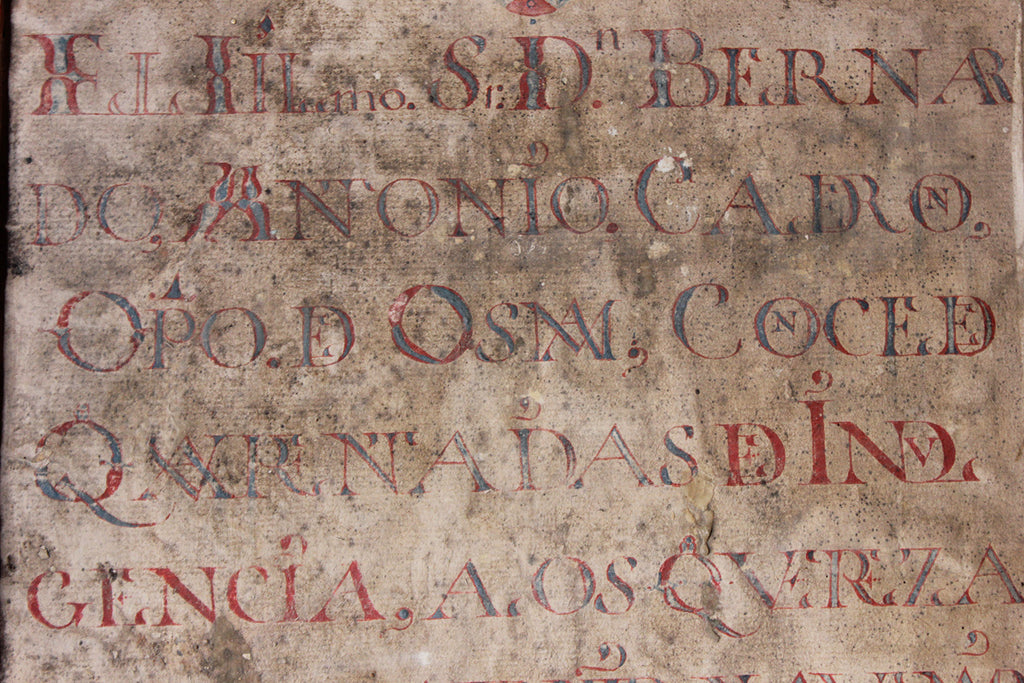 EL ILmo. Sr: Dn. BERNAR
DO, ANTONIO. CALDRON,
OPO. DE OSMA, CONCEDE
QVARENTA DIAS DE INDVL
GENCIA, A LOS QVE REZA